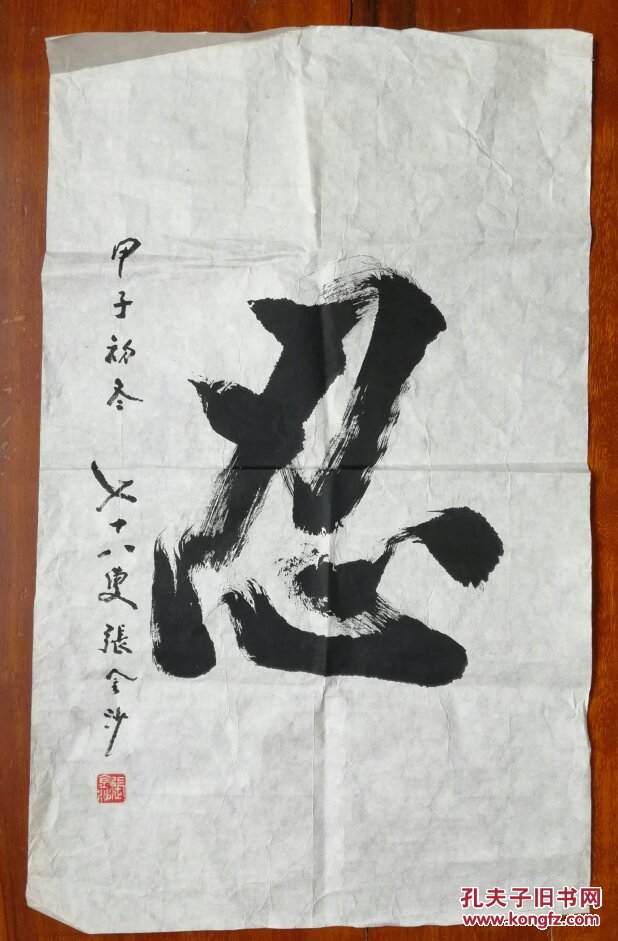 忍
甲子初冬 七十八叟 張金沙
孔夫子旧书网
www.kongfz.com